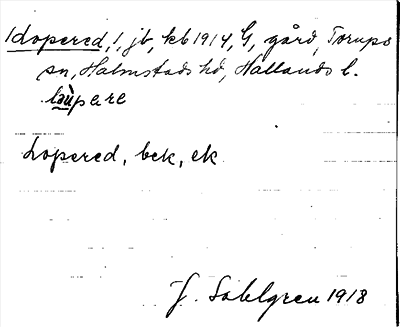 Lopered, !, jb, kb 1914, G, gård, Torups
sn, Halmstads hd, Hallands l.
lau̇pere
Lopered, bek, ek
J. Sahlgren 1918